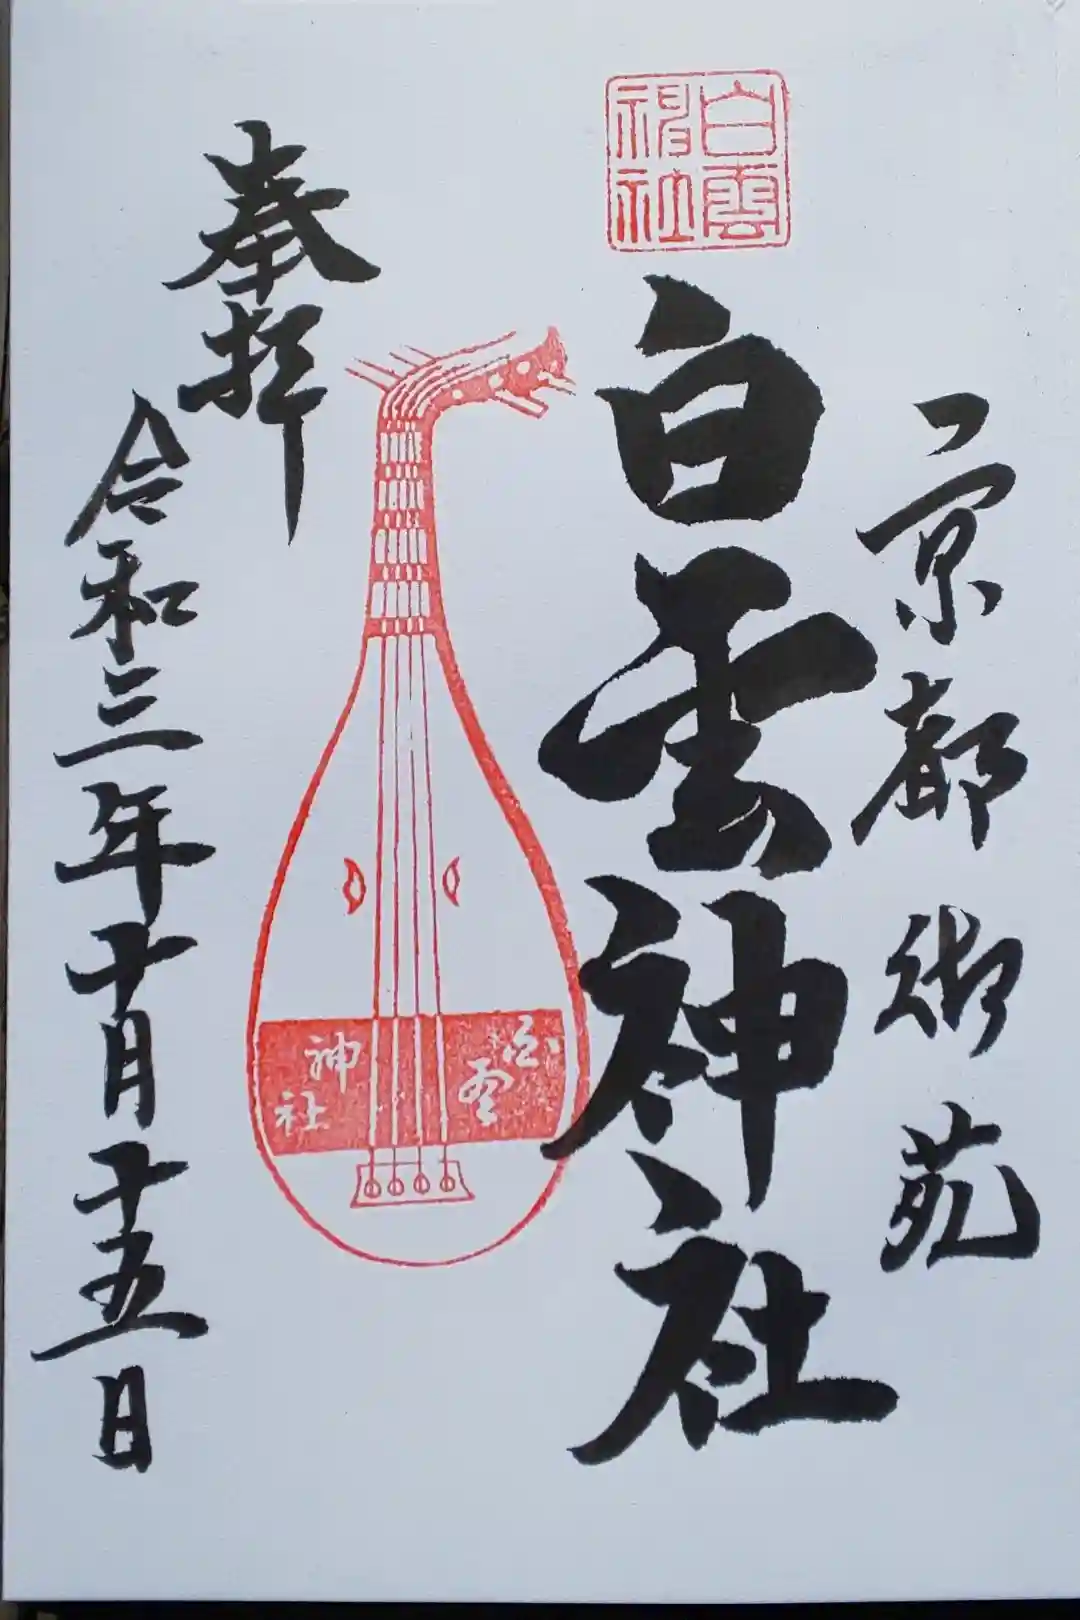 京都御苑
白雲神社
白雲
神社
白雲
神社
奉拝
令和三年十月十五日